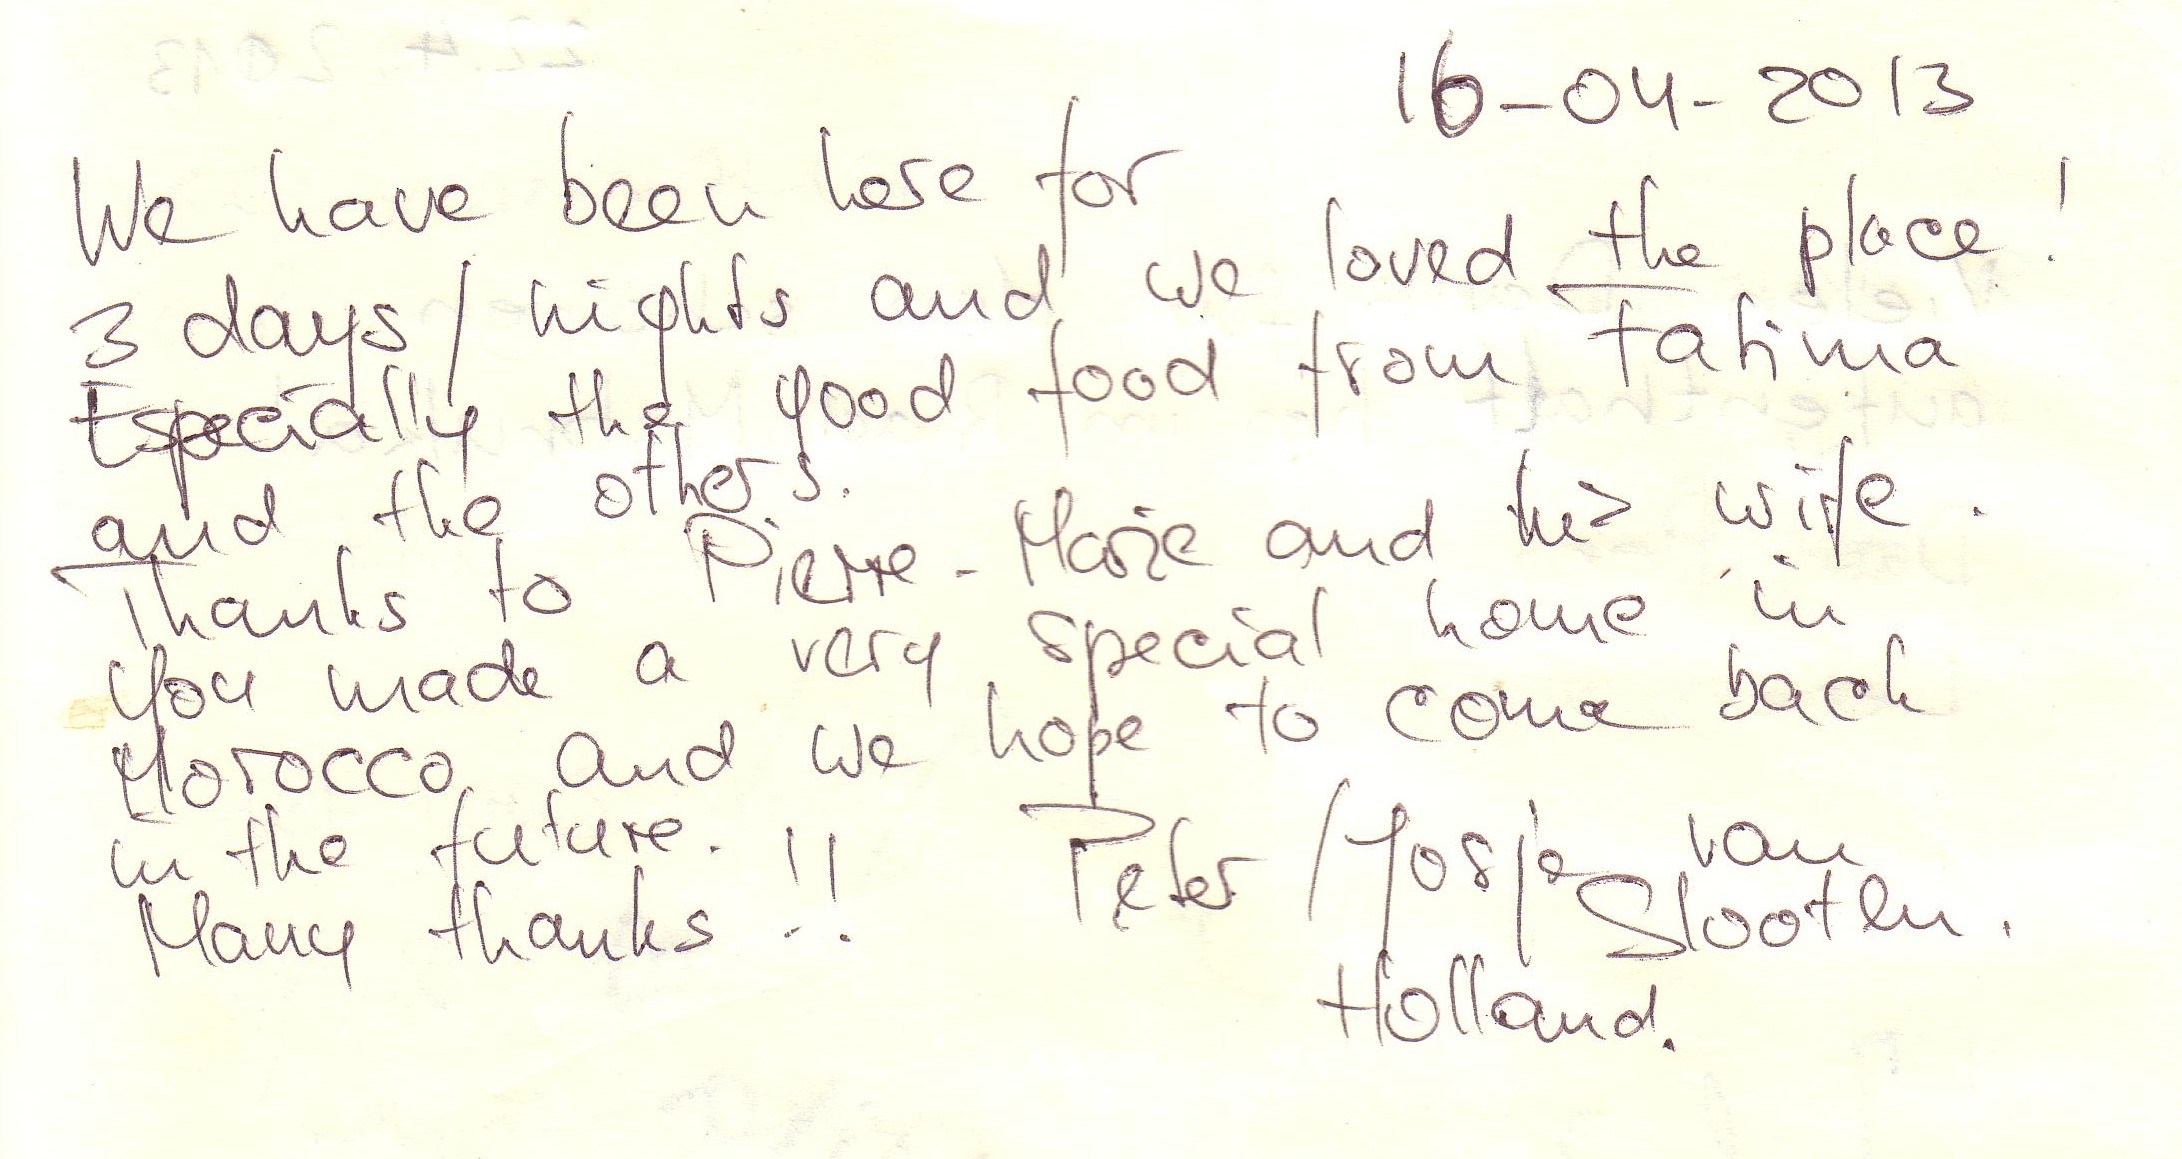 16-04-2013
We have been here for
3 days/nights and we loved the place!
Especially the good food from Fatima
and the others.
Thanks to Pierre-Marie and his wife.
You made a very special home in
Morocco and we hope to come back
in the future.
Many thanks!!
Peter / Josje van
Slooten.
Holland.